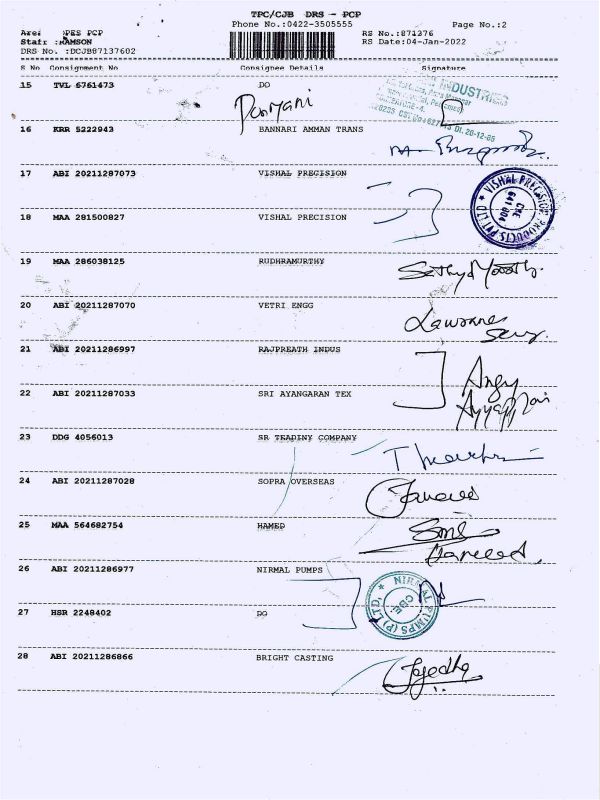 TPC/CJB DRS - PCP
Phone No.:0422-3505555
Page No.:2
PES PCP
RS No.:871376
Staff :RAMSON
RS Date:04-Jan-2022
DRS No. :DCJB87137602
S No Consignment No Consignee Details Signature
15 TVL 6761473 DO
INDUSTRIES
16 KRR 5222943 BANNARI AMMAN TRANS
17 ABI 20211287073 VISHAL PRECISION
VISHAL PRECISION PRODUCTS PVT LTD
CBE
641 004
18 MAA 281500827 VISHAL PRECISION
19 MAA 286038125 RUDHRAMURTHY
20 ABI 20211287070 VETRI ENGG
21 ABI 20211286997 RAJPREATH INDUS
22 ABI 20211287033 SRI AYANGARAN TEX
23 DDG 4056013 SR TEAPINY COMPANY
24 ABI 20211287028 SOPRA OVERSEAS
25 MAA 564682754 HAMED
26 ABI 20211286977 NIRMAL PUMPS
NIRMAL PUMPS (P) LTD.
27 HSR 2248402 DO
28 ABI 20211286866 BRIGHT CASTING